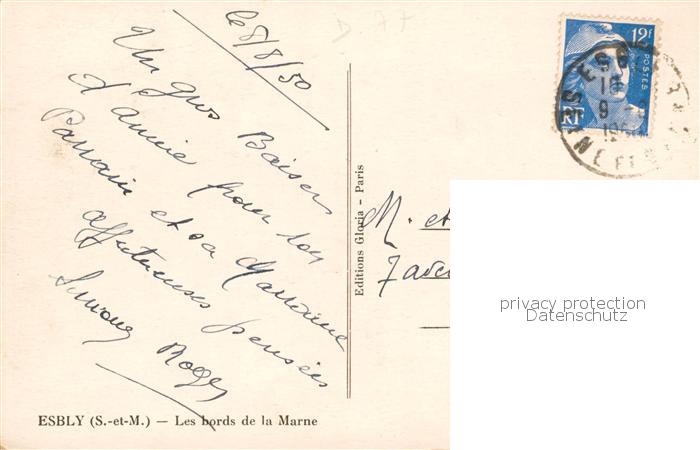 le 8/8/50
Un gros Baiser
d'Annie pour son
Parrain et sa Marraine
affectueuses pensées
Simone Roger
ESBLY (S.-et-M.) — Les bords de la Marne
Editions Gloria - Paris
12F
POSTES
RF
ESBLY
9
SEINE ET MARNE
M. et
privacy protection
Datenschutz